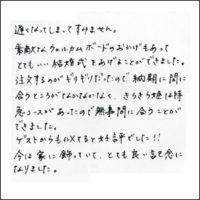 遅くなってしまってすみません。
素敵なウェルカムボードのおかげもあって
とてもいい結婚式をあげることができました。
注文するのがギリギリだったので納期に間に
合うところがなかなかなく、きらきら姫は特
急コースがあったので無事間に合うことが
できました。
ゲストからもイイネてると好評でした!!
今は家に飾っていて、とても良い記念に
なりました。